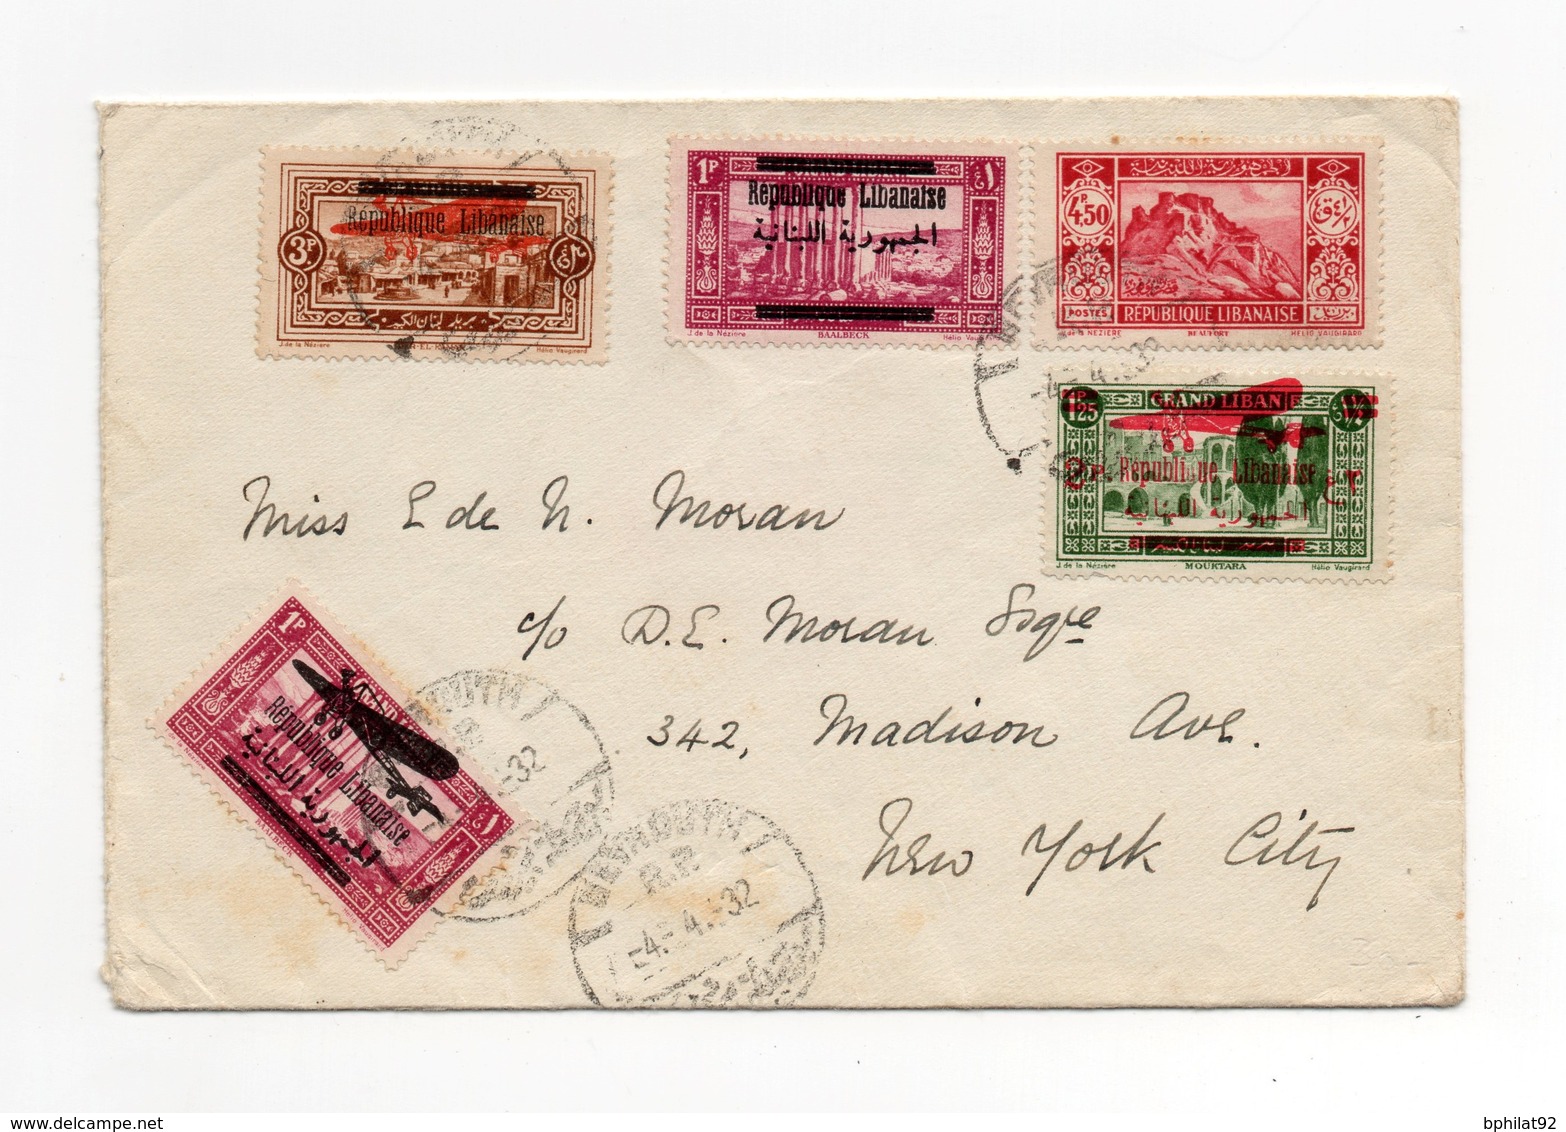 3P
République Libanaise
J. de la Nézière
Hélio Vaugirard
1P
République Libanaise
الجمهورية اللبنانية
J. de la Nézière BAALBECK Hélio Vaugirard
الجمهورية اللبنانية
4P50
POSTES RÉPUBLIQUE LIBANAISE
BEAUFORT HÉLIO VAUGIRARD
GRAND LIBAN
1P25
République Libanaise
الجمهورية اللبنانية
J. de la Nézière MOUKTARA Hélio Vaugirard
Miss E de N. Moran
c/o D.E. Moran Esqre
342, Madison Ave.
New York City
1P
République Libanaise
الجمهورية اللبنانية
BEYROUTH
R.P.
-4.-4.-32
bphilat92